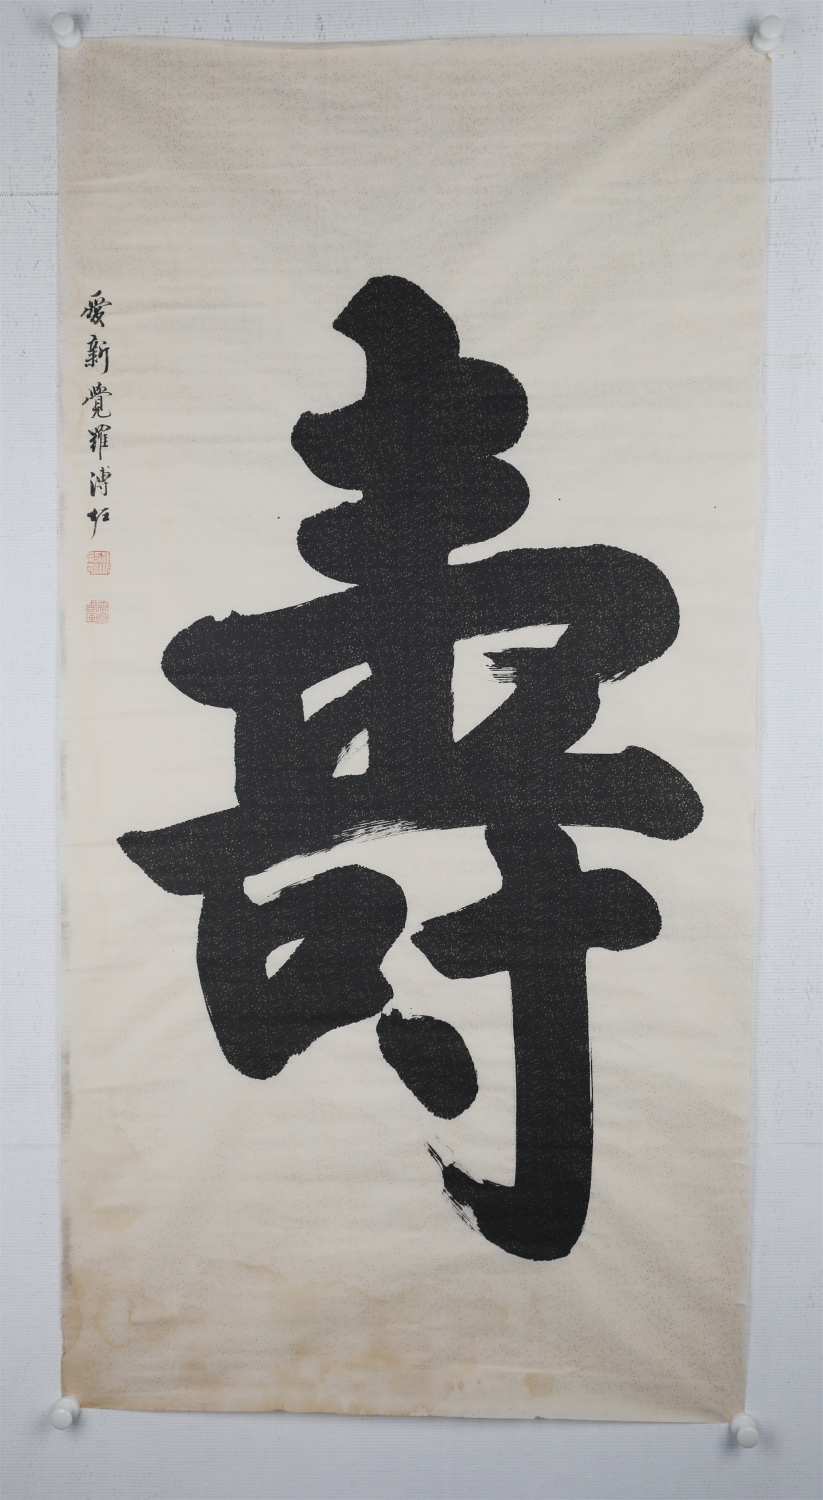 壽
愛新覺羅溥佐